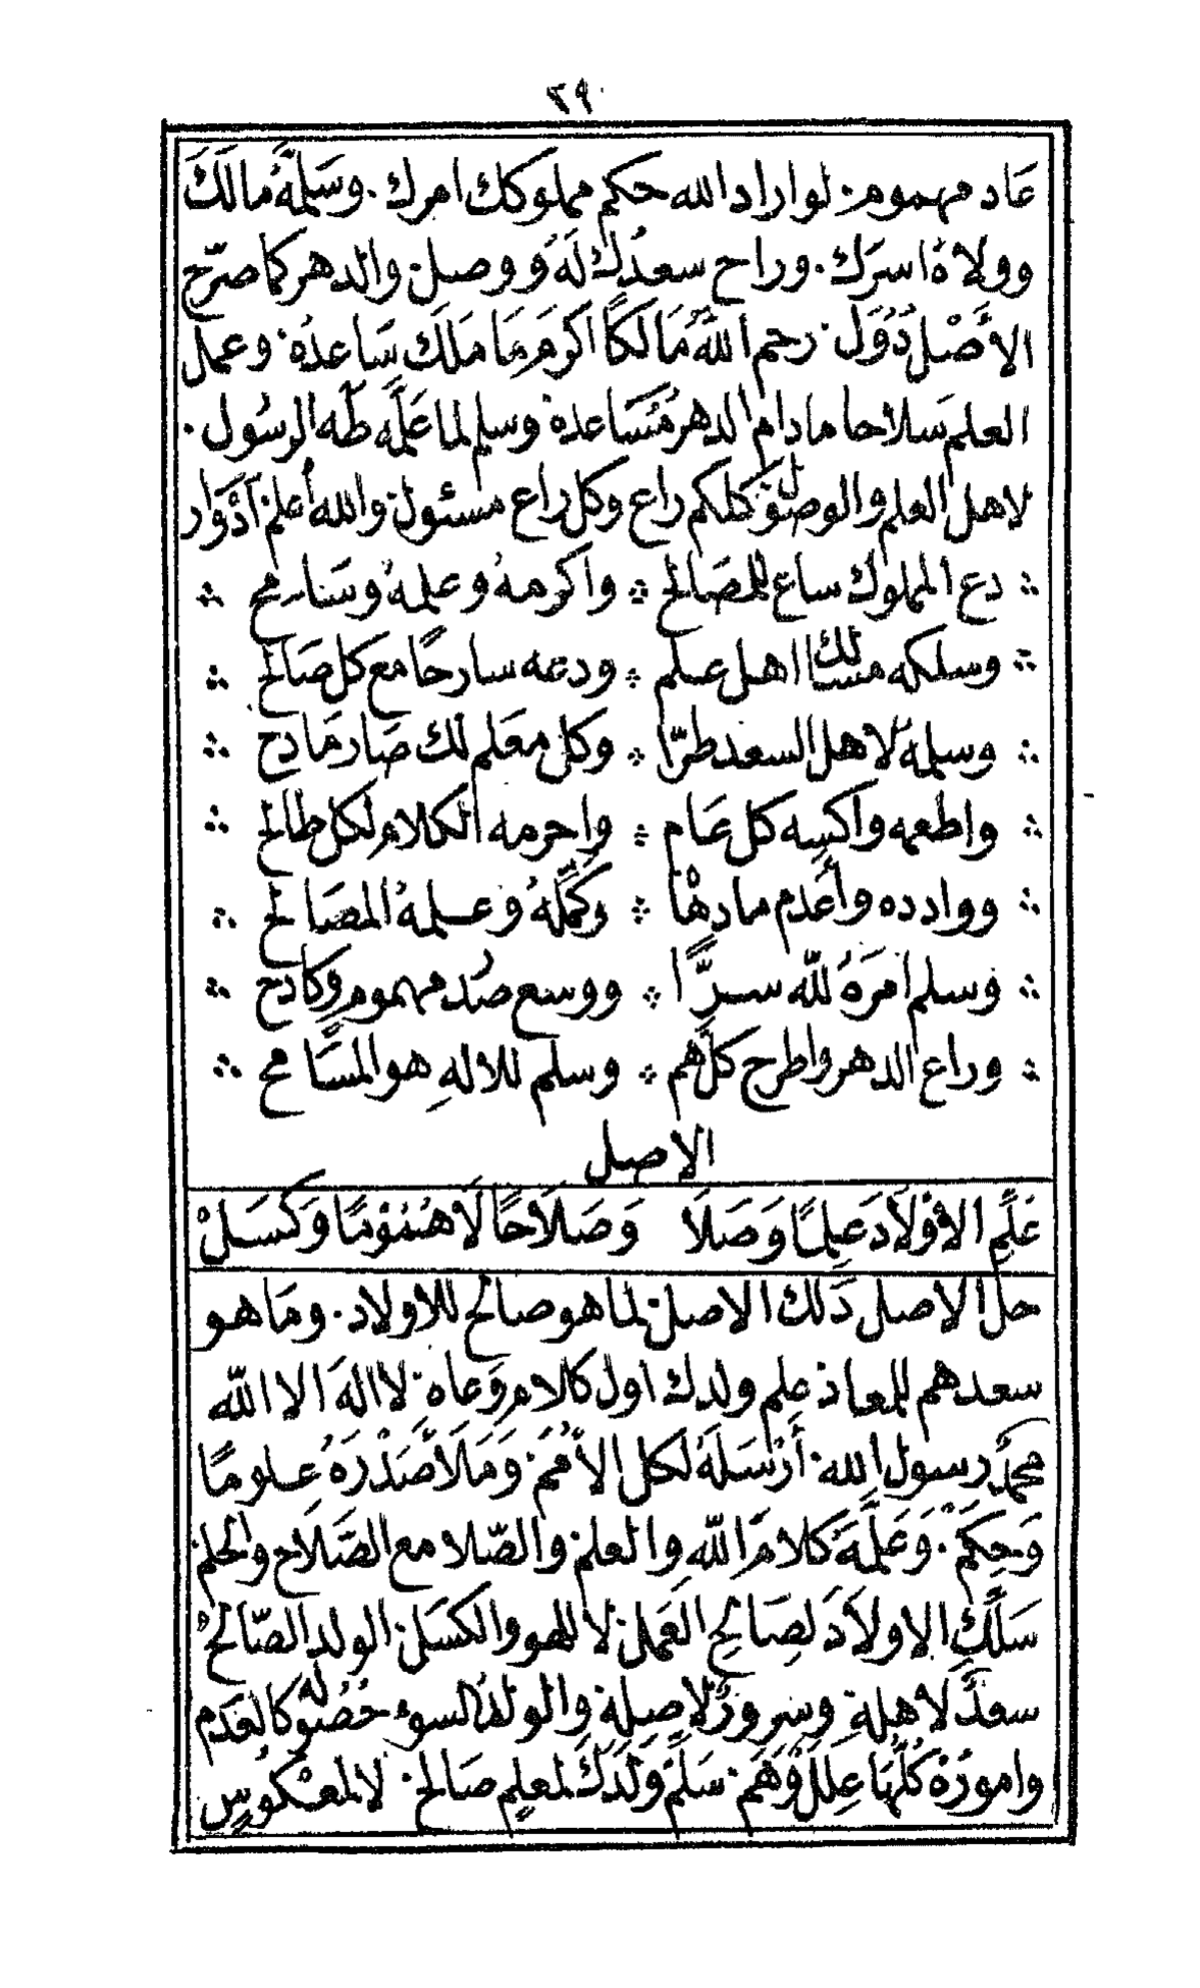 ٢٩
عَاد مهموم. لو اراد الله حكم مملوكك امرك. وسَلِمَّهُ مالَكَ
وولاهُ اسرَك. وراح سعدُك لَهُ ووصل. والدهر كما صرّح
الأَصْل دُوَل. رحم اللّهُ مَالكًا اكرَمَ مَا مَلَك سَاعده. وعمل
العلم سَلاحا مادام الدهر مُسَاعده وسلم لما عَلَّمه طٰه الرسُول.
لاهل العلم والوصول. كلكم راع وكل راع مسئول. والله أعلم أدْوَار
دع المملوك ساع للمصَالح ؞ واكرمهُ وعلمهُ وسَامح
وسلكه مسالك اهل علم ؞ ودعه سارحًا مع كل صَالح
وسلمهُ لاهل السعد طرّا ؞ وكل معَلم لك صَار مَادح
واطعمه واكسِه كل عَام ؞ واحرمه الكلام لكل طالح
ووادده وأعدم مادهْا ؞ وكَمّلهُ وعلمهُ المصَالح
وسلم امرَهُ للّه سرًّا ؞ ووسع صدر مهموم وكادح
وراع الدهر واطرح كل هم ؞ وسلم للالهِ هو المسَامح
الاصل
عَلِّمِ الاَوْلَادَ عِلمًا وَصَلَا وَصَلاَحًا لَا هُمُوْمًا وَكَسَلْ
حل الاصل ذلك الاصل. لما هو صالح للاولاد. ومَا هو
سعدهم للمعاد علم ولدك اول كلام وَعاه. لا الهَ الا اللّه
محمدٌ رسول الله. أَرْسَلَهُ لكل الأُمَم. وَمَلَأ صَدْرَهُ علومًا
وَحِكَمْ. وَعَلَّمَهُ كلامَ اللّهِ والعلم. والصّلا مع الصَّلَاح والحلم
سَلِّكِ الاولاَدَ لصَالِحِ العَمل. لا للهو والكسَل. الولد الصّالحْ
سعدٌ لاهلهِ وسرورٌ لاصلِهِ والولدُ السوء حُصُولهُ كالعدم
وامورُهْ كُلّهَا عِلَلٌ وَهَم. سَلّمْ ولدَك لمعلِم صَالح. لا لمعكُوسٍ